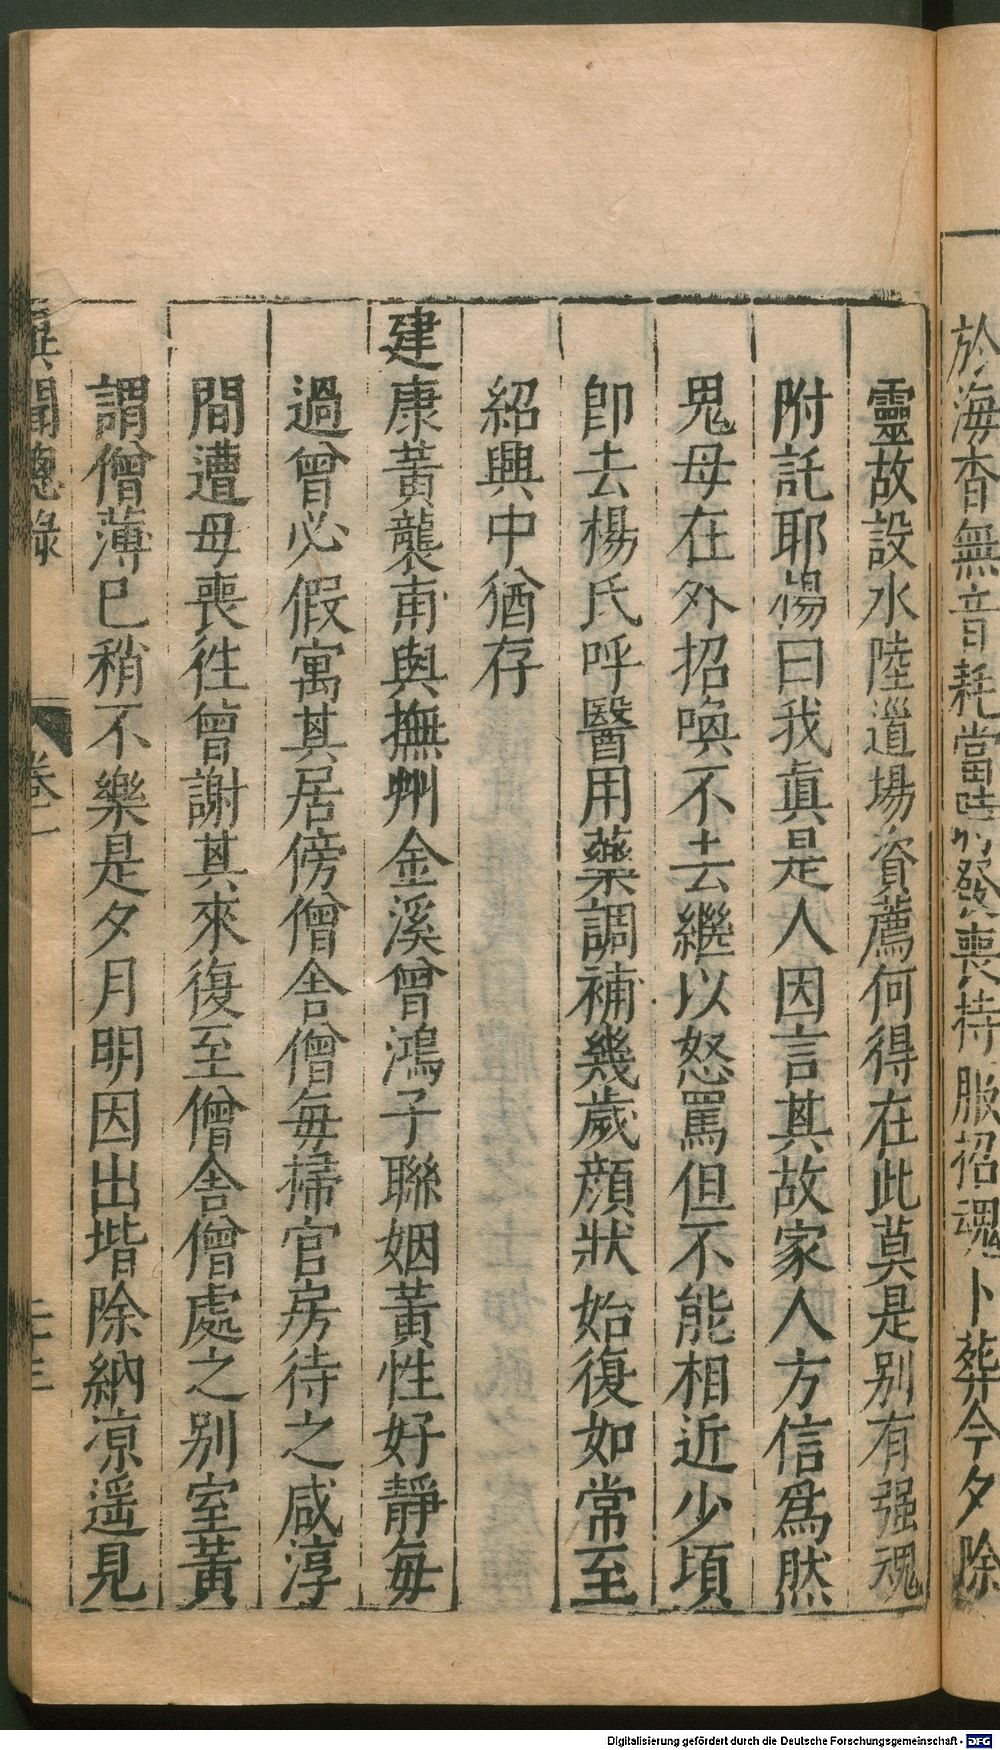 於海杳無音耗當時發喪持服招魂卜葬今夕除
靈故設水陸道場資薦何得在此莫是別有强魂
附託耶楊曰我眞是人因言其故家人方信爲然
鬼母在外招喚不去繼以怒罵但不能相近少頃
卽去楊氏呼醫用藥調補幾歲顔狀始復如常至
紹興中猶存
建康黃襲甫與撫州金溪曾鴻子聯姻黃性好靜每
過曾必假寓其居傍僧舍僧每掃官房待之咸淳
間遭母喪徃曾謝其來復至僧舍僧處之別室黃
謂僧薄已稍不樂是夕月明因出堦除納凉遥見
異聞總錄
卷一
二三
Digitalisierung gefördert durch die Deutsche Forschungsgemeinschaft - DFG